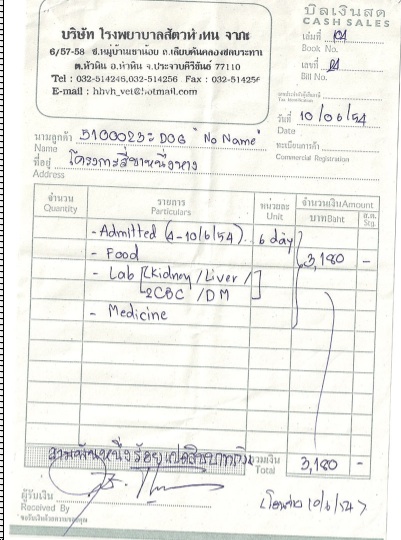 บิลเงินสด
CASH SALES
บริษัท โรงพยาบาลสัตว์หัวหิน จำกัด
6/57-58 ซ.หมู่บ้านเขาน้อย ถ.เลียบคันคลองชลประทาน
ต.หัวหิน อ.หัวหิน จ.ประจวบคีรีขันธ์ 77110
Tel : 032-514246,032-514256 Fax : 032-514256
E-mail : hhvh_vet@hotmail.com
เล่มที่ 104
Book No.
เลขที่
Bill No.
วันที่ 10/06/54
Date
นามลูกค้า 5100023 = DOG "No Name"
Name
ทะเบียนการค้า
Commercial Registration
ที่อยู่ โครงการสี่ขาหนึ่งหาง
Address
จำนวน รายการ หน่วยละ จำนวนเงิน Amount
Quantity Particulars Unit บาท Baht ส.ต. Stg.
- Admitted (4-10/6/54) 6 day
- Food 3,180 -
- Lab [2Kidney / Liver /
2CBC / DM]
- Medicine
สามพันหนึ่งร้อยแปดสิบบาทถ้วน รวมเงิน
Total 3,180 -
ผู้รับเงิน
Received By
(โอนแล้ว 10/6/54)